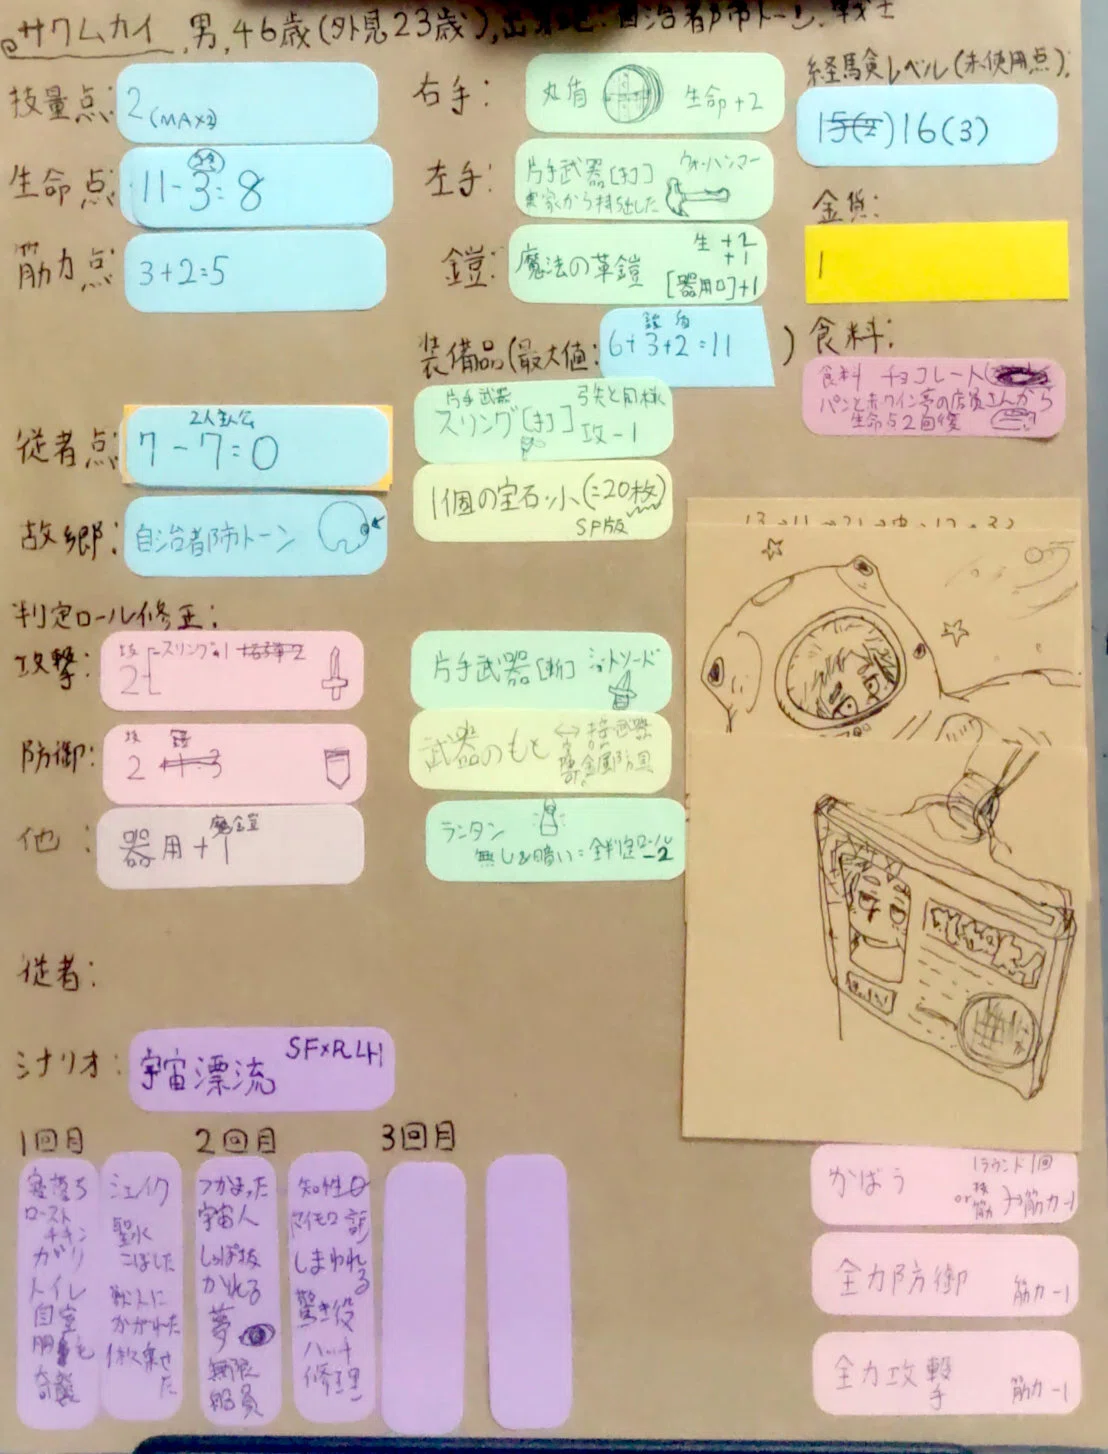 サワムカイ,男,46歳(外見23歳),出身地:自治都市トーン.戦士
技量点:
2(MAX2)
生命点:
11-3=8
筋力点:
3+2=5
右手:
丸盾 生命+2
左手:
片手武器[打] ウォーハンマー
実家から持ち出した
鎧:
魔法の革鎧
生+2
+1
[器用ロ]+1
経験レベル(未使用点):
16(3)
金貨:
1
装備品(最大値:
6+3+2=11
)
食料:
食料 チョコレート
パンと赤ワイン亭の店員さんから
生命点2回復
片手武器 弓矢と同様
スリング[打] 攻-1
1個の宝石・小(=20枚)
SP版
従者点:
2人主人公
7-7=0
故郷:
自治都市トーン
判定ロール修正:
攻撃:
2
スリング-1
防御:
2
他:
器用+1
魔鎧
片手武器[斬] ショートソード
武器のもと
ランタン
無し&暗い=全判定ロール-2
従者:
シナリオ:
宇宙漂流 SF×RLH
1回目
寝落ち
ロースト
チキン
ガリ
トイレ
自室
奇襲
シェイク
聖水
こぼした
2回目
つかまった
宇宙人
しっぽ抜
かれる
夢
無限
船員
しまわれ
る
驚き役
ハッチ
修理
3回目
かばう
1ラウンド1回
筋力-1
全力防御 筋力-1
全力攻撃 筋力-1